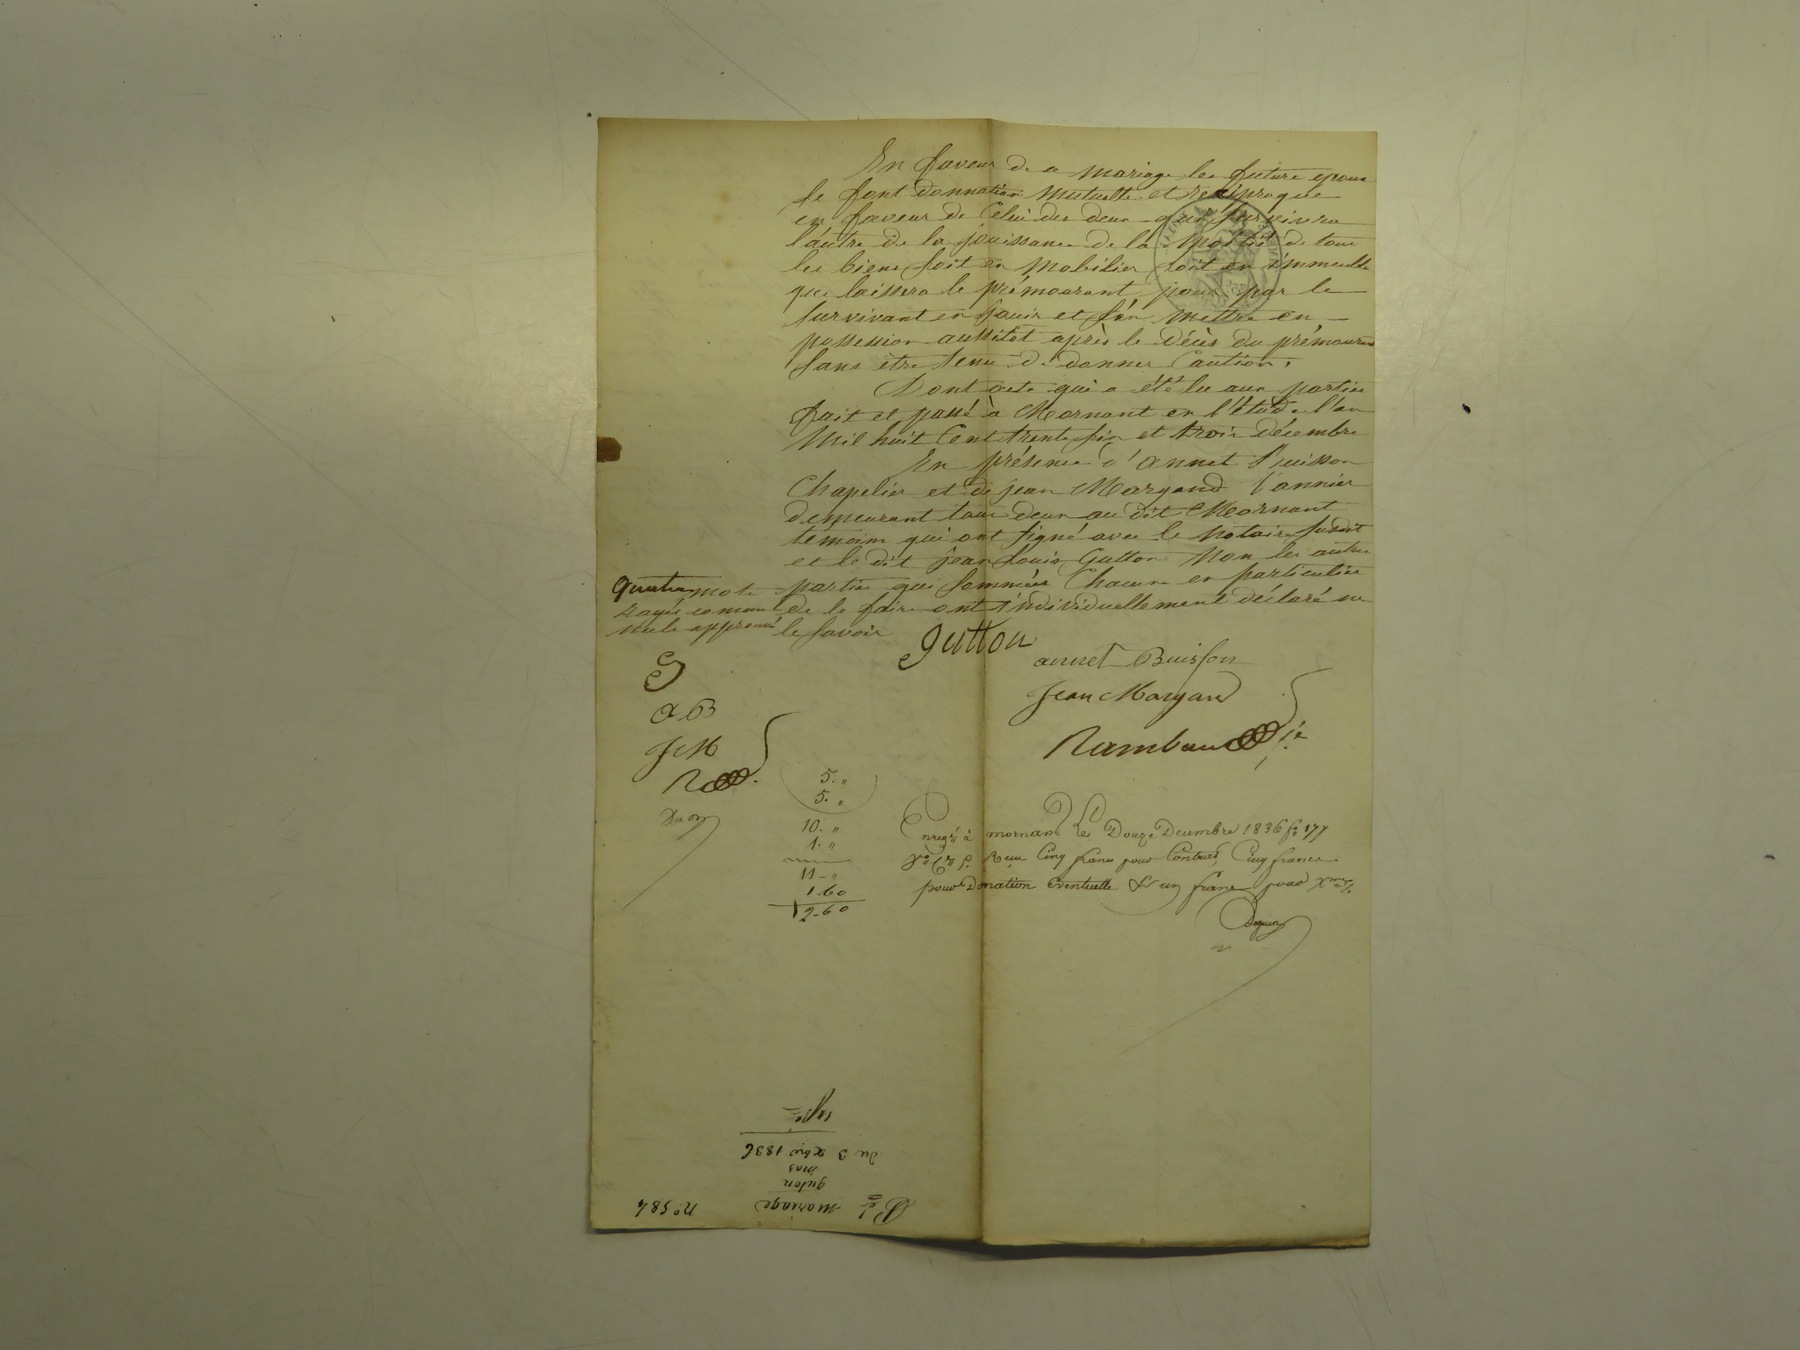 En faveur de ce mariage les futurs epoux
se font donnation mutuelle et réciproque
en faveur de Celui des deux qui survivra
l'autre de la jouissance de la moitié de tous
les biens soit en mobilier soit en immeuble
que laissera le prémourant, pour par le
survivant en jouir et s'en mettre en
possession aussitôt après le décès du prémourant
sans être tenu de donner Caution.
Dont acte qui a été lu aux parties
fait et passé à Mornant en l'étude l'an
Mil huit Cent trente six et trois décembre
En présence d'annet Buisson
Chapelier et de jean Margand Vannier
demeurant tous deux au dit Mornant
témoins qui ont signé avec le notaire susdit
et le dit jean Louis Gutton Non les autres
parties qui sommées Chacune en particulier
de le faire ont individuellement déclaré ne
le savoir
quatre mots
rayés comme
nuls approuvé
Gutton
annet Buisson
Jean Margand
Rambaud
G
A B
J M
R
5. "
5. "
10. "
1. "
11 - "
1.60
12-60
Enregté à mornant Le Douze Decembre 1836 fo 177
Reçu Cinq francs pour Contrat, Cinq francs
pour Donation Eventuelle & un franc pour Xme
n° 584
mariage
guton
mas
du 3 xbre 1836